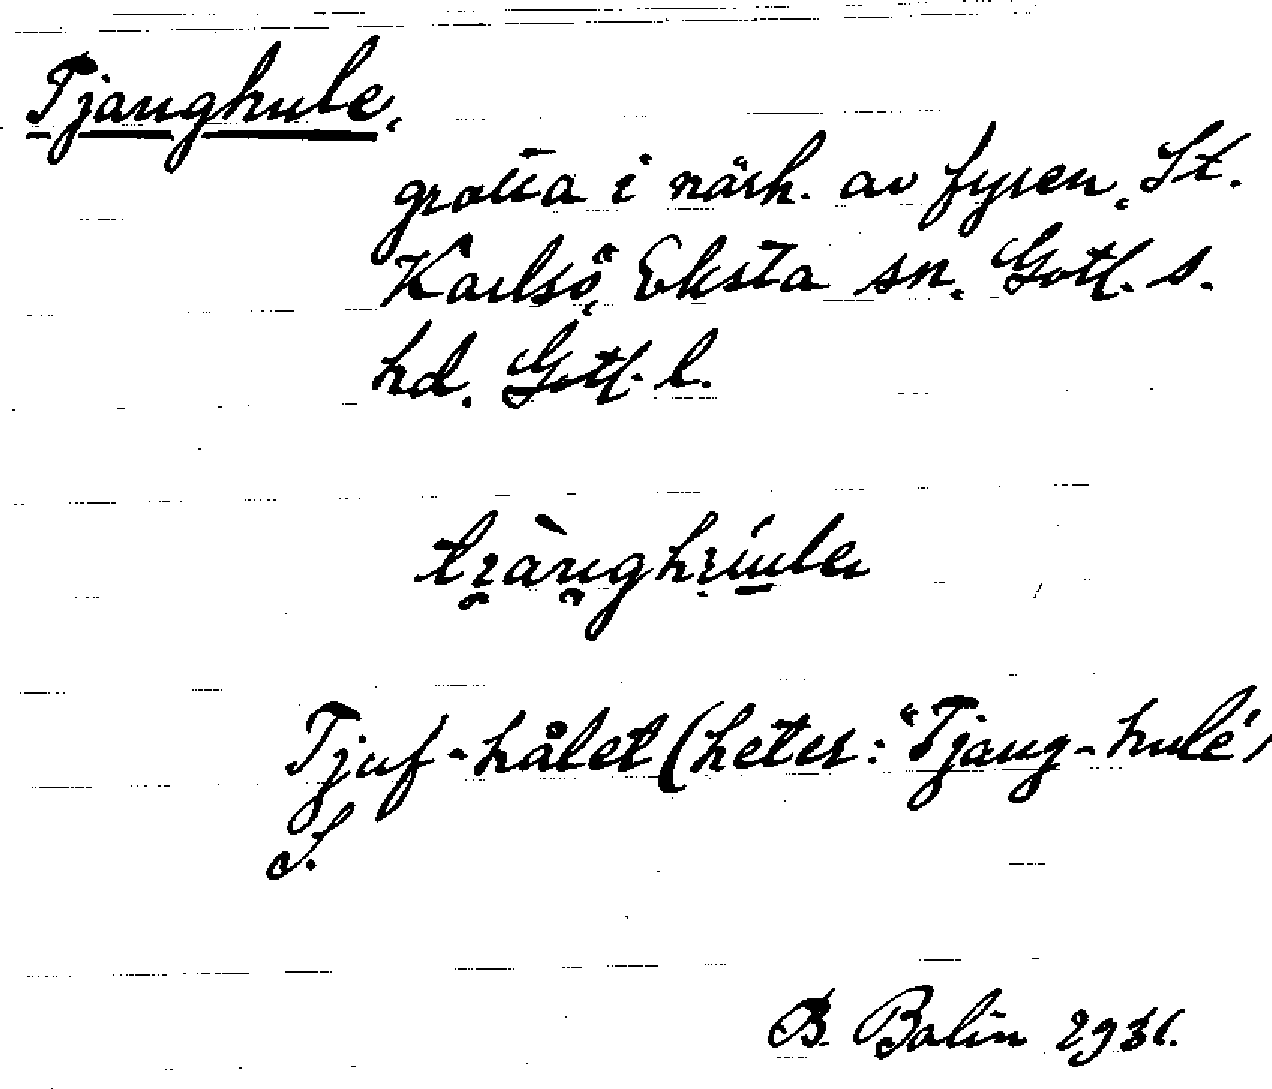 Tjanghule,
grotta i närh. av fyren, St.
Karlsö, Eksta sn, Gotl. s.
hd, Gotl. l.
Tjuf-hålet (heter: "Tjang-hule",
S.
B. Bolin 1931.